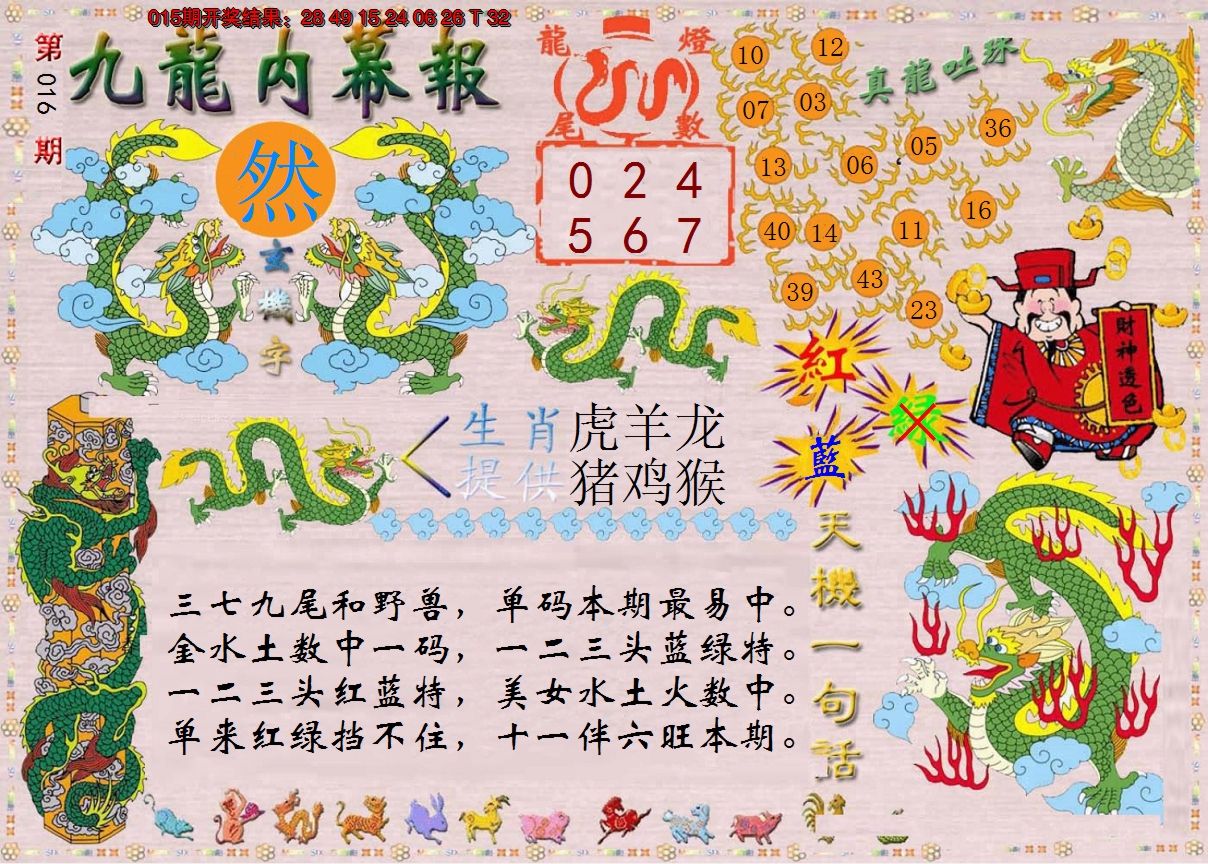 015期开奖结果：28 49 15 24 06 26 T 32
第016期
九龍内幕報
然
玄機字
龍燈尾數
0 2 4
5 6 7
真龍吐珠
10
12
07
03
05
36
13
06
16
40
14
11
39
43
23
財神透色
紅
绿
藍
生肖提供
虎羊龙
猪鸡猴
天機一句話
三七九尾和野兽，单码本期最易中。
金水土数中一码，一二三头蓝绿特。
一二三头红蓝特，美女水土火数中。
单来红绿挡不住，十一伴六旺本期。